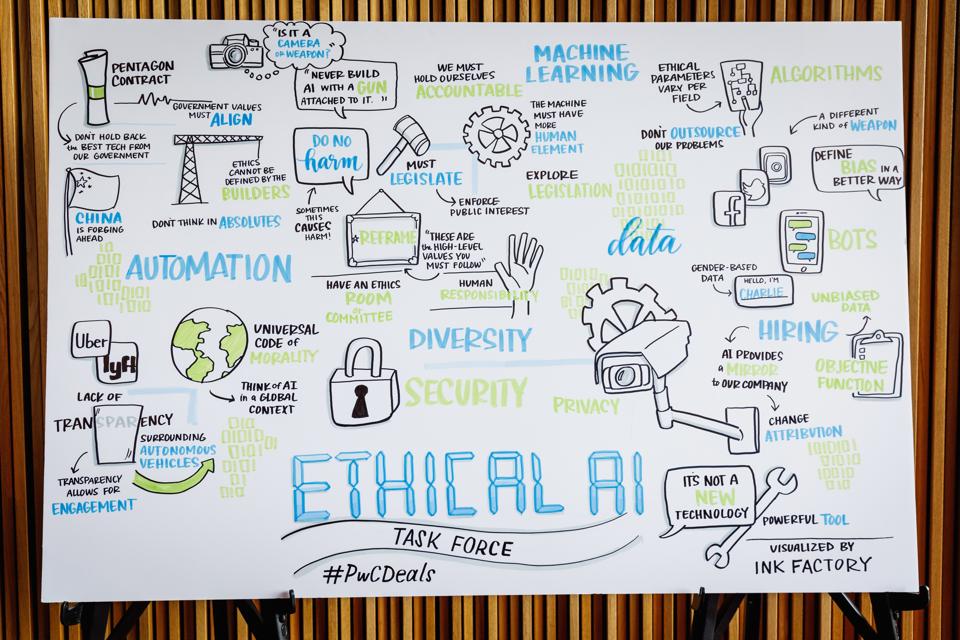 "IS IT A
CAMERA
OR WEAPON?"
PENTAGON
CONTRACT
GOVERNMENT VALUES
MUST ALIGN
DON'T HOLD BACK
the BEST TECH FROM
OUR GOVERNMENT
"NEVER BUILD
AI WITH A GUN
ATTACHED TO IT."
WE MUST
HOLD OURSELVES
ACCOUNTABLE
MACHINE
LEARNING
THE MACHINE
MUST HAVE
MORE
HUMAN
ELEMENT
ETHICAL
PARAMETERS
VARY PER
FIELD
ALGORITHMS
DON'T OUTSOURCE
OUR PROBLEMS
A DIFFERENT
KIND of WEAPON
DEFINE
BIAS IN A
BETTER WAY
f
CHINA
IS FORGING
AHEAD
ETHICS
CANNOT BE
DEFINED BY THE
BUILDERS
DON'T THINK IN ABSOLUTES
DO NO
harm
SOMETIMES
THIS
CAUSES
HARM!
MUST
LEGISLATE
ENFORCE
PUBLIC INTEREST
EXPLORE
LEGISLATION
REFRAME
"THESE ARE
the HIGH-LEVEL
VALUES YOU
MUST FOLLOW"
HAVE AN ETHICS
ROOM
or
COMMITTEE
HUMAN
RESPONSIBILITY
data
BOTS
GENDER-BASED
DATA
HELLO, I'M
CHARLIE
UNBIASED
DATA
HIRING
OBJECTIVE
FUNCTION
AI PROVIDES
a MIRROR
to OUR COMPANY
CHANGE
ATTRIBUTION
AUTOMATION
Uber
lyft
UNIVERSAL
CODE of
MORALITY
THINK of AI
in a GLOBAL
CONTEXT
LACK OF
TRANSPARENCY
SURROUNDING
AUTONOMOUS
VEHICLES
TRANSPARENCY
ALLOWS FOR
ENGAGEMENT
DIVERSITY
SECURITY
PRIVACY
ETHICAL AI
TASK FORCE
#PwCDeals
IT'S NOT A
NEW
TECHNOLOGY
POWERFUL TOOL
VISUALIZED BY
INK FACTORY